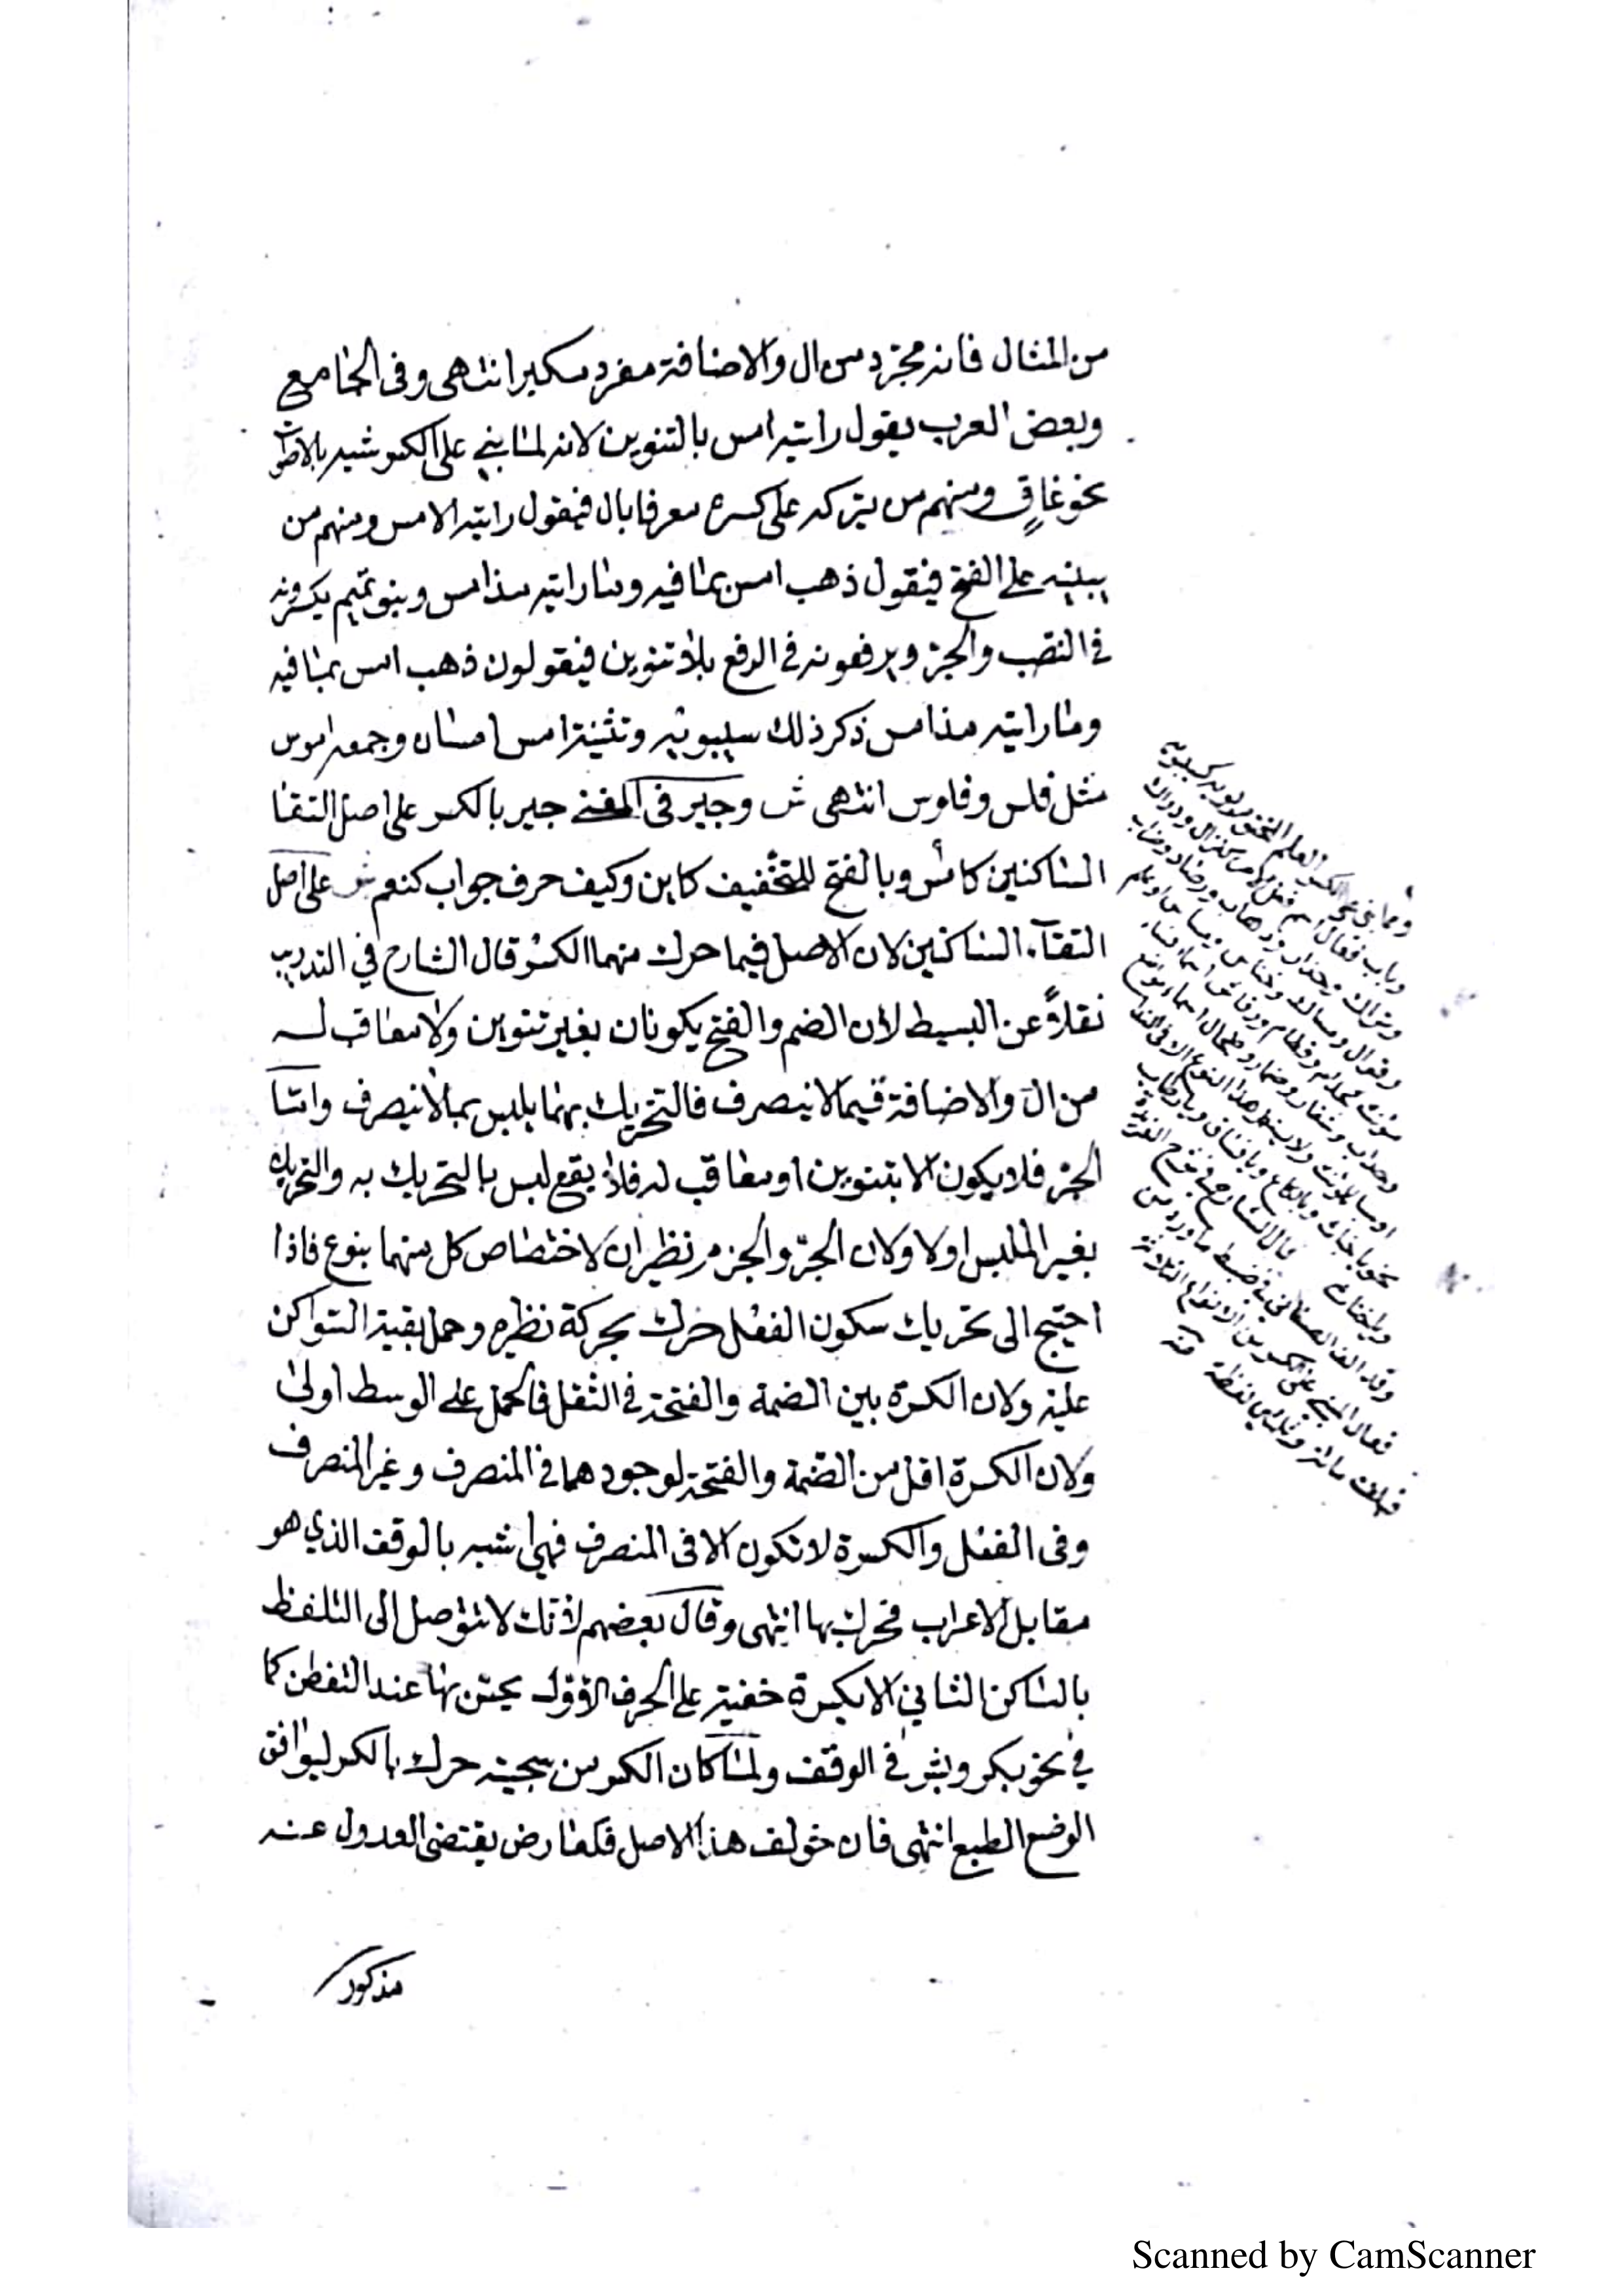 من المثال فانه مجرد من ال والاضافة مفرد مكبر انتهى وفى الجامع
وبعض العرب يقول رايته امس بالتنوين لانه لما بني على الكسر شبه بالاصوات
نحو غاقٍ ومنهم من يتركه على كسره معرفا بال فيقول رايته الامس ومنهم من
يبنيه على الفتح فيقول ذهب امس بما فيه وما رايته مذ امس وبنو تميم يكسرونه
فى النصب والجرّ ويرفعونه فى الرفع بلا تنوين فيقولون ذهب امس بما فيه
وما رايته مذ امس ذكر ذلك سيبويه وتثنية امس امسان وجمعه اموس
مثل فلس وفلوس انتهى ش وجير فى المغنى جير بالكسر على اصل التقا
الساكنين كامس وبالفتح للتخفيف كاين وكيف حرف جواب كنعم ش على اصل
التقآء الساكنين لان الاصل فيما حرك منهما الكسر قال الشارح في التدريب
نقلاً عن البسيط لان الضم والفتح يكونان بغير تنوين ولا معاقب له
من ال والاضافة فيما لا ينصرف فالتحريك بهما يلبس بما لا ينصرف واما
الجرّ فلا يكون الا بتنوين او معاقب له فلا يقع لبس بالتحريك به والتحريك
بغير الملبس اولا ولان الجرّ والجزم نظيران لاختصاص كل منهما بنوع فاذا
احتيج الى تحريك سكون الفعل حرك بحركة نظيره وحمل بقية السواكن
عليه ولان الكسرة بين الضمة والفتحة فى الثقل فالحمل على الوسط اولى
ولان الكسرة اقل من الضمة والفتحة لوجودهما فى المنصرف وغير المنصرف
وفى الفعل والكسرة لا تكون الا فى المنصرف فهى اشبه بالوقف الذي هو
مقابل الاعراب فحرك بها انتهى وقال بعضهم لانك لا تتوصل الى التلفظ
بالساكن الثاني الا بكسرة خفية على الحرف الاول يحس بها عند التفطن كما
في نحو بكر وبشر فى الوقف ولما كان الكسر من سجيته حرك بالكسر ليوافق
الوضع الطبع انتهى فان خولف هذا الاصل فلعارض يقتضى العدول عنه
مذكور
ومما بنى على الكسر العلم المختوم بويه كسيبويه
وباب فعال اسم فعل امر كنزال ودراك
وتراك وحذار
قال الشارح فى
وقد الف الصغانى فى ضبط ما ورد من
فعال المبنى على الكسر من الانواع الثلاثة
فبلغت مائة وثلاثين لفظة